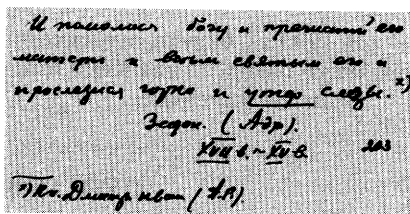 И помолися богу и пречистей его
матери и всем святым его и
прослезися горко и утер слезы. ²⁾
Задон. (Адр).
XVII в. ~ XV в. 203
²⁾ Кн. Дмитр иван (Я.Р).